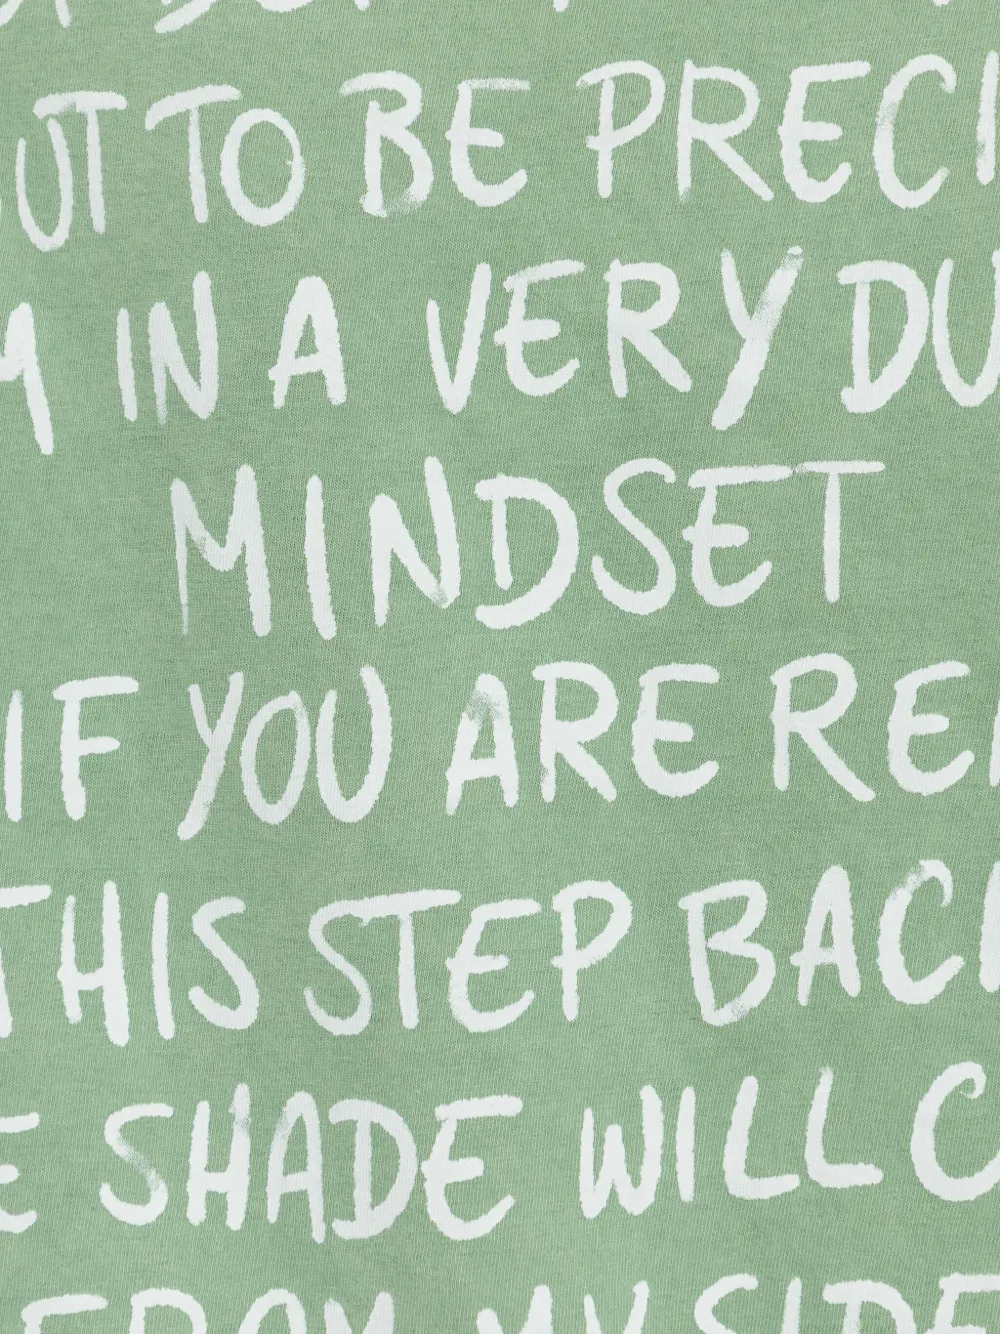 UT TO BE PRECI
M IN A VERY DU
MINDSET
IF YOU ARE RE
THIS STEP BAC
E SHADE WILL C
FROM MY SIDE